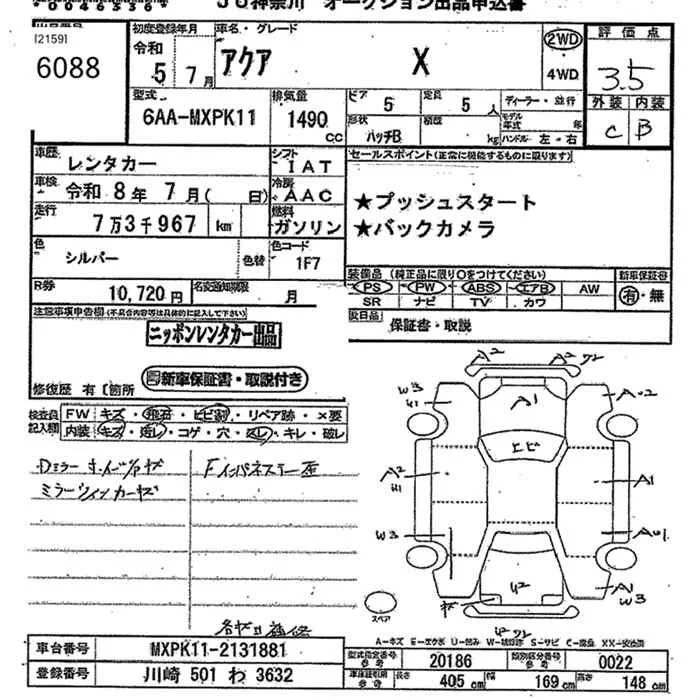 JU神奈川 オークション出品申込書
[2159]
6088
初度登録年月
令和
5年 7月
車名・グレード
アクア X
2WD
4WD
評価点
3.5
外装 内装
C B
型式
6AA-MXPK11
排気量
1490 CC
ドア
5
定員
5人
形状
ハッチB
積載
kg
ディーラー・並行
モデル年式 年
ハンドル 左・右
車歴
レンタカー
シフト
IAT
車検 令和 8年 7月( 日)
冷房
AAC
走行
7万3千967 km
燃料
ガソリン
色
シルバー
色替
色コード
1F7
R券
10,720円
名変通知期限
月
セールスポイント(正常に機能するものに限ります)
★プッシュスタート
★バックカメラ
装備品 (純正品に限り○をつけてください)
PS PW ABS エアB AW
SR ナビ TV カワ
新車保証書
有・無
保証書・取説
注意事項申告欄(不具合内容等は具体的に記入して下さい)
ニッポンレンタカー出品
新車保証書・取説付き
修復歴 有 [箇所
検査員記入欄
FW キズ・飛石・ヒビ割・リペア跡・×要
内装 キズ・汚レ・コゲ・穴・スレ・キレ・破レ
ミラーウインカーキズ
A2 A2
W3 A1
エビ
A2 A1
W3
A1
W3
U2
スペア
A-キズ E-エクボ U-凹み W-補修跡 S-サビ C-腐食 XX-交換済
車台番号 MXPK11-2131881
登録番号 川崎 501 わ 3632
型式指定番号 参考 20186
類別区分番号 参考 0022
車体寸法 参考 長さ 405 cm 幅 169 cm 高さ 148 cm